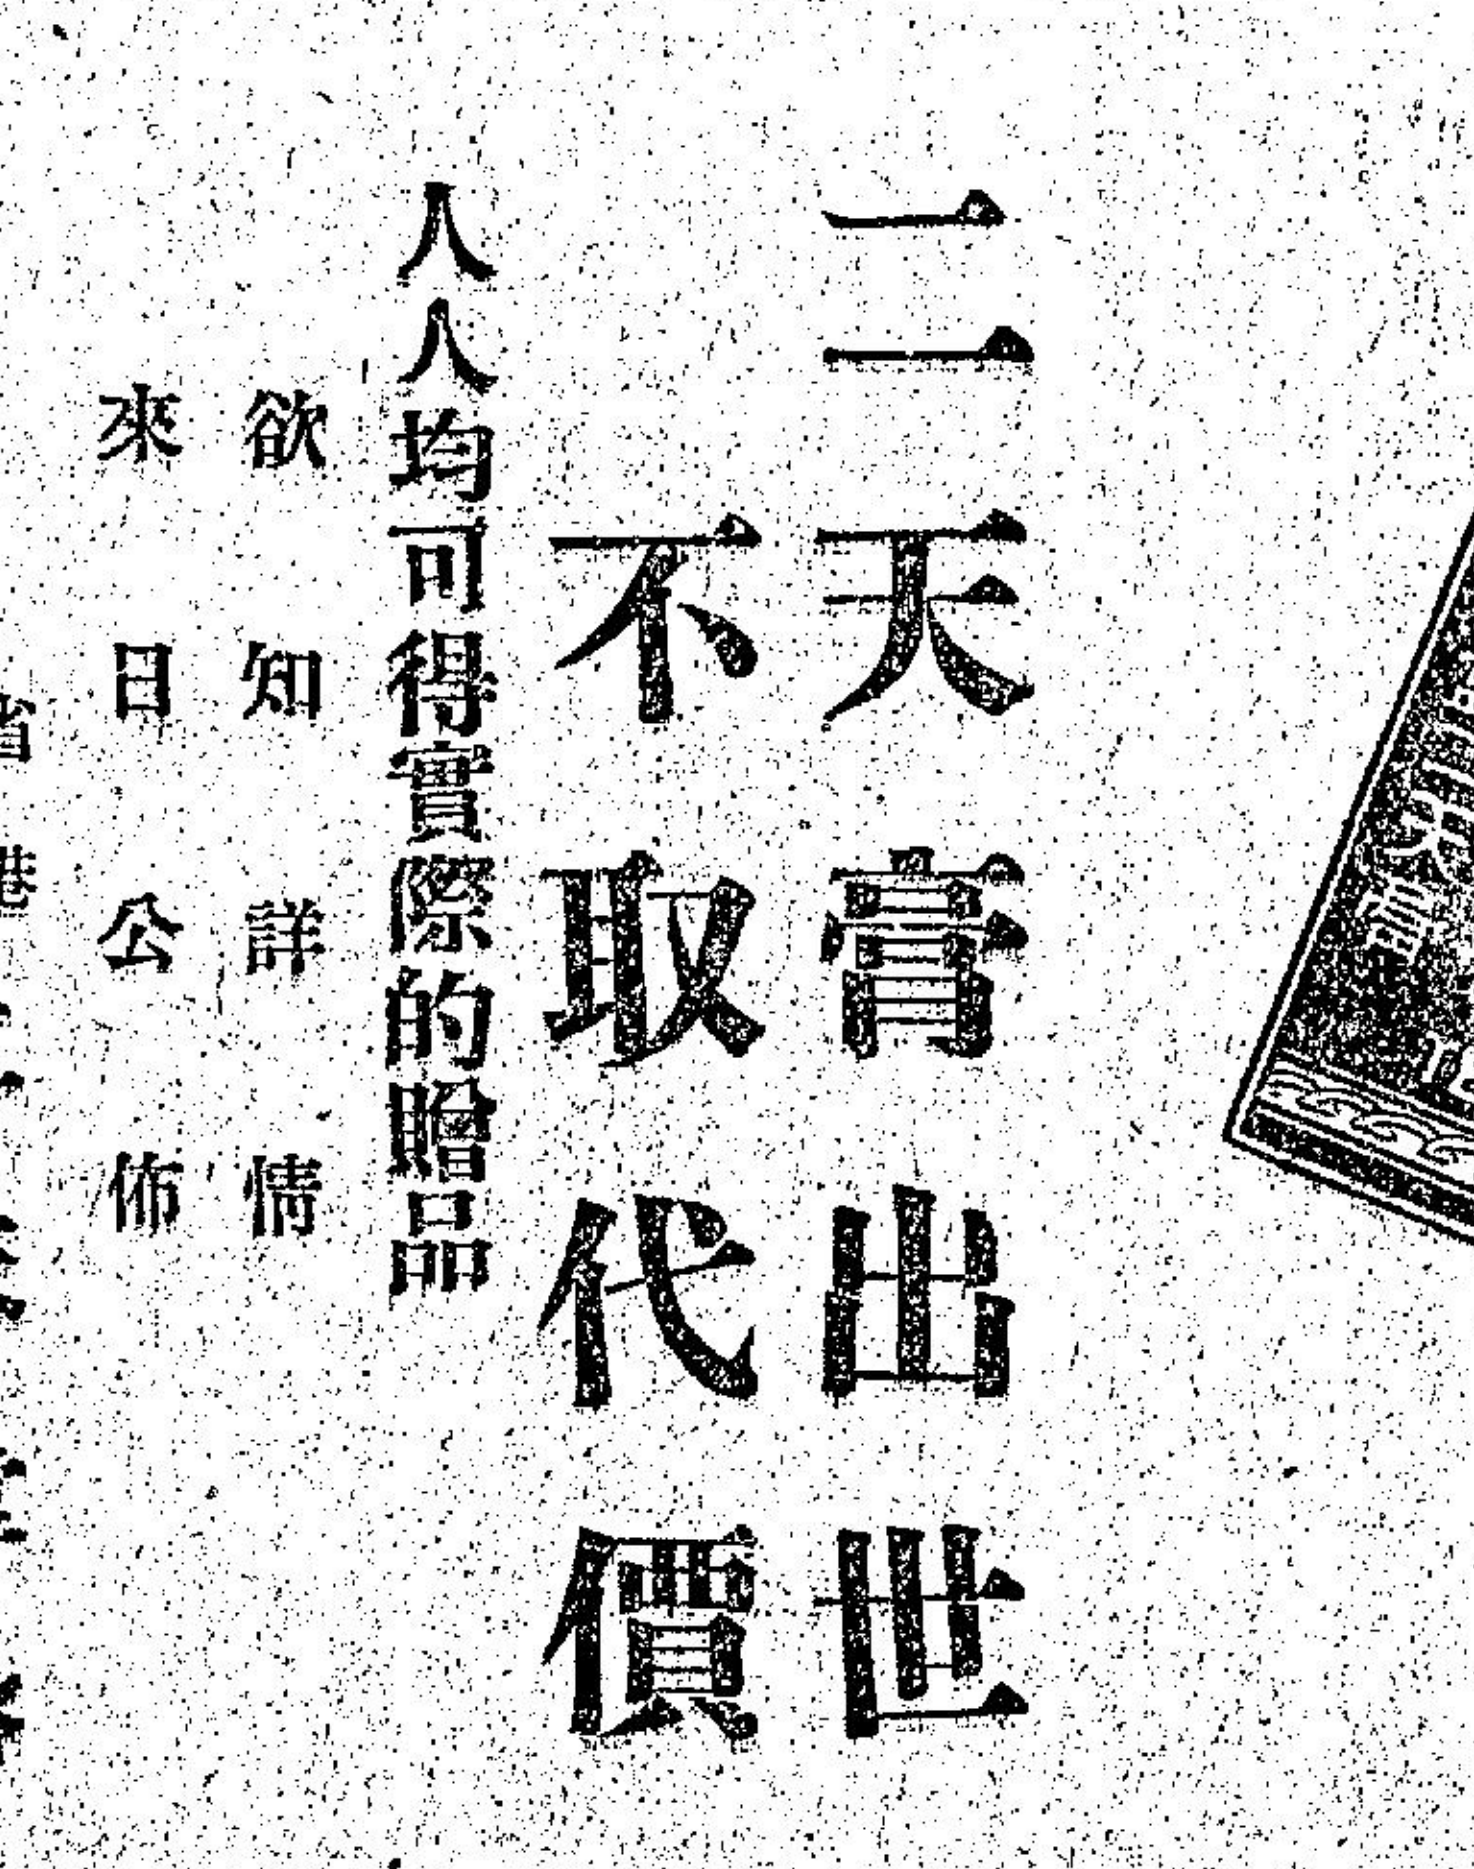 二天膏出世
不取代價
人人均可得實際的贈品
欲知詳情
來日公佈
省港